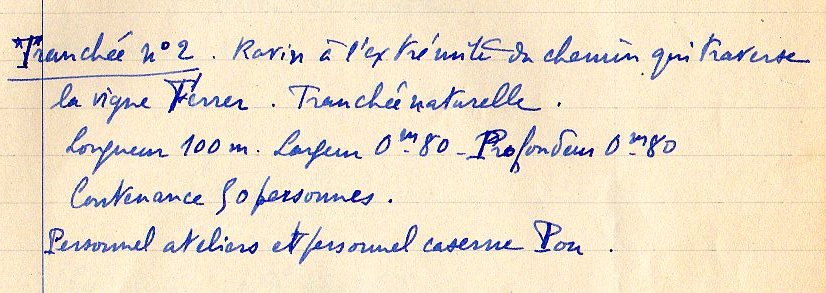 Tranchée n° 2. Ravin à l'extrémité du chemin qui traverse
la vigne Ferrer. Tranchée naturelle.
Longueur 100 m. Largeur 0m80 - Profondeur 0m80
Contenance 50 personnes.
Personnel ateliers et personnel caserne Pou.